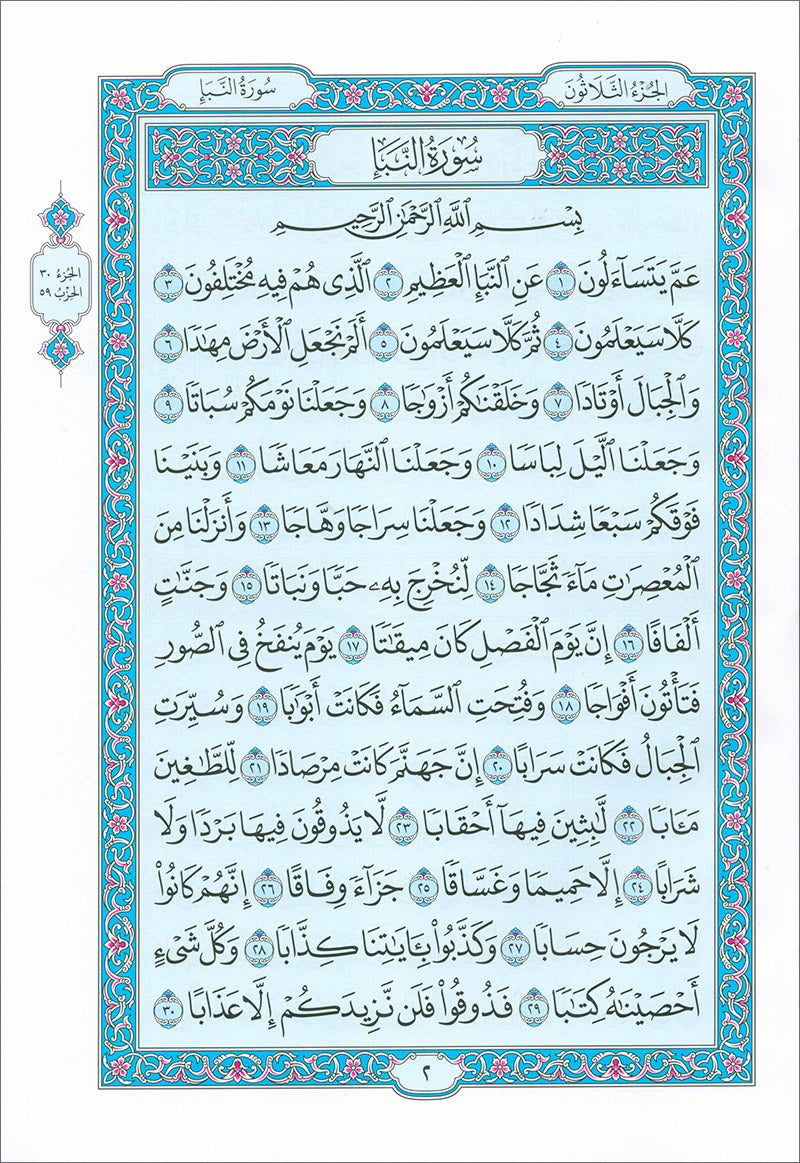 الجُزْءُ الثَّلَاثُونَ
سُورَةُ النَّبَإِ
سُورَةُ النَّبَإِ
الجُزءُ ٣٠
الحِزْبُ ٥٩
بِسْمِ ٱللَّهِ ٱلرَّحْمَٰنِ ٱلرَّحِيمِ
عَمَّ يَتَسَآءَلُونَ ١ عَنِ ٱلنَّبَإِ ٱلْعَظِيمِ ٢ ٱلَّذِى هُمْ فِيهِ مُخْتَلِفُونَ ٣
كَلَّا سَيَعْلَمُونَ ٤ ثُمَّ كَلَّا سَيَعْلَمُونَ ٥ أَلَمْ نَجْعَلِ ٱلْأَرْضَ مِهَٰدًا ٦
وَٱلْجِبَالَ أَوْتَادًا ٧ وَخَلَقْنَٰكُمْ أَزْوَٰجًا ٨ وَجَعَلْنَا نَوْمَكُمْ سُبَاتًا ٩
وَجَعَلْنَا ٱلَّيْلَ لِبَاسًا ١٠ وَجَعَلْنَا ٱلنَّهَارَ مَعَاشًا ١١ وَبَنَيْنَا
فَوْقَكُمْ سَبْعًا شِدَادًا ١٢ وَجَعَلْنَا سِرَاجًا وَهَّاجًا ١٣ وَأَنزَلْنَا مِنَ
ٱلْمُعْصِرَٰتِ مَآءً ثَجَّاجًا ١٤ لِّنُخْرِجَ بِهِۦ حَبًّا وَنَبَاتًا ١٥ وَجَنَّٰتٍ
أَلْفَافًا ١٦ إِنَّ يَوْمَ ٱلْفَصْلِ كَانَ مِيقَٰتًا ١٧ يَوْمَ يُنفَخُ فِى ٱلصُّورِ
فَتَأْتُونَ أَفْوَاجًا ١٨ وَفُتِحَتِ ٱلسَّمَآءُ فَكَانَتْ أَبْوَٰبًا ١٩ وَسُيِّرَتِ
ٱلْجِبَالُ فَكَانَتْ سَرَابًا ٢٠ إِنَّ جَهَنَّمَ كَانَتْ مِرْصَادًا ٢١ لِّلطَّٰغِينَ
مَـَٔابًا ٢٢ لَّٰبِثِينَ فِيهَآ أَحْقَابًا ٢٣ لَّا يَذُوقُونَ فِيهَا بَرْدًا وَلَا
شَرَابًا ٢٤ إِلَّا حَمِيمًا وَغَسَّاقًا ٢٥ جَزَآءً وِفَاقًا ٢٦ إِنَّهُمْ كَانُوا۟
لَا يَرْجُونَ حِسَابًا ٢٧ وَكَذَّبُوا۟ بِـَٔايَٰتِنَا كِذَّابًا ٢٨ وَكُلَّ شَىْءٍ
أَحْصَيْنَٰهُ كِتَٰبًا ٢٩ فَذُوقُوا۟ فَلَن نَّزِيدَكُمْ إِلَّا عَذَابًا ٣٠
٢